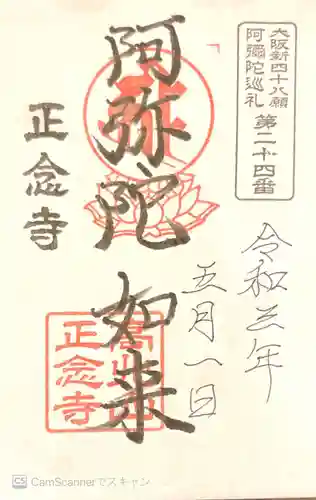 大阪新四十八願
阿彌陀巡礼 第二十四番
令和三年
五月一日
阿弥陀如来
正念寺
正念寺
CS CamScannerでスキャン